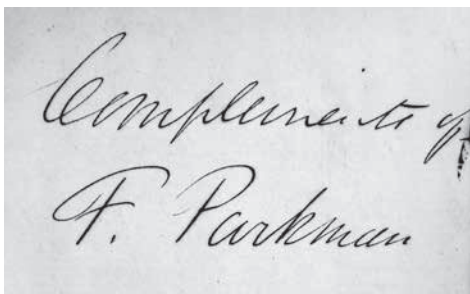 Compliments of
F. Parkman